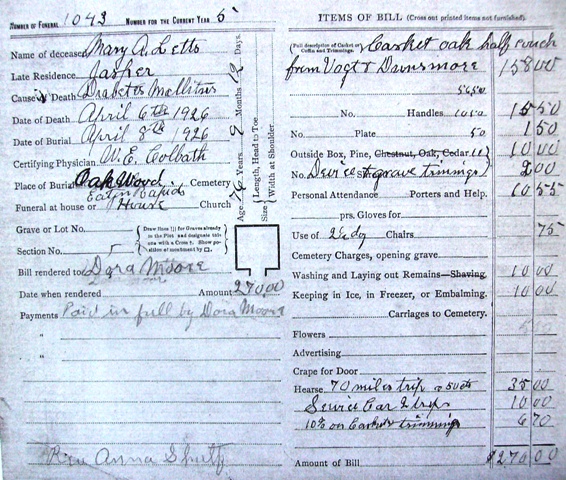 NUMBER OF FUNERAL 1043 NUMBER FOR THE CURRENT YEAR 5
Name of deceased Mary A. Letts
Late Residence Jasper
Cause of Death Diabetes Mellitus
Date of Death April 6th 1926
Date of Burial April 8th 1926
Certifying Physician W. E. Colbath
Place of Burial Oak Wood Cemetery
Eaton Rapids
Funeral at house or House Church
Grave or Lot No.
Section No.
{ Draw lines for Graves already in the Plot and designate this one with a Cross †. Show position of monument by }
Bill rendered to Dora Moore
Date when rendered Amount 270.00
Payments Paid in full by Dora Moore
"
"
Rev Anna Shultz
Age 76 Years 9 Months 12 Days.
Size { Length, Head to Toe
Width at Shoulder
ITEMS OF BILL (Cross out printed items not furnished).
(Full description of Casket or Coffin and Trimmings.) Casket oak half couch
from Vogt & Dunsmore 158 00
56 50
No. Handles 10 50 15 50
No. Plate 50 1 50
Outside Box, Pine, Chestnut, Oak, Cedar 10 00
No. grave trimings 2 00
Personal Attendance Porters and Help. 10 55
prs. Gloves for
Use of 2½ dz Chairs 75
Cemetery Charges, opening grave.
Washing and Laying out Remains—Shaving. 10 00
Keeping in Ice, in Freezer, or Embalming. 10 00
Carriages to Cemetery.
Flowers
Advertising
Crape for Door
Hearse 70 miles trip @ 50 cts 35 00
Service Car 2 trips 10 00
10% on Casket & trimmings 6 70
Amount of Bill $270.00